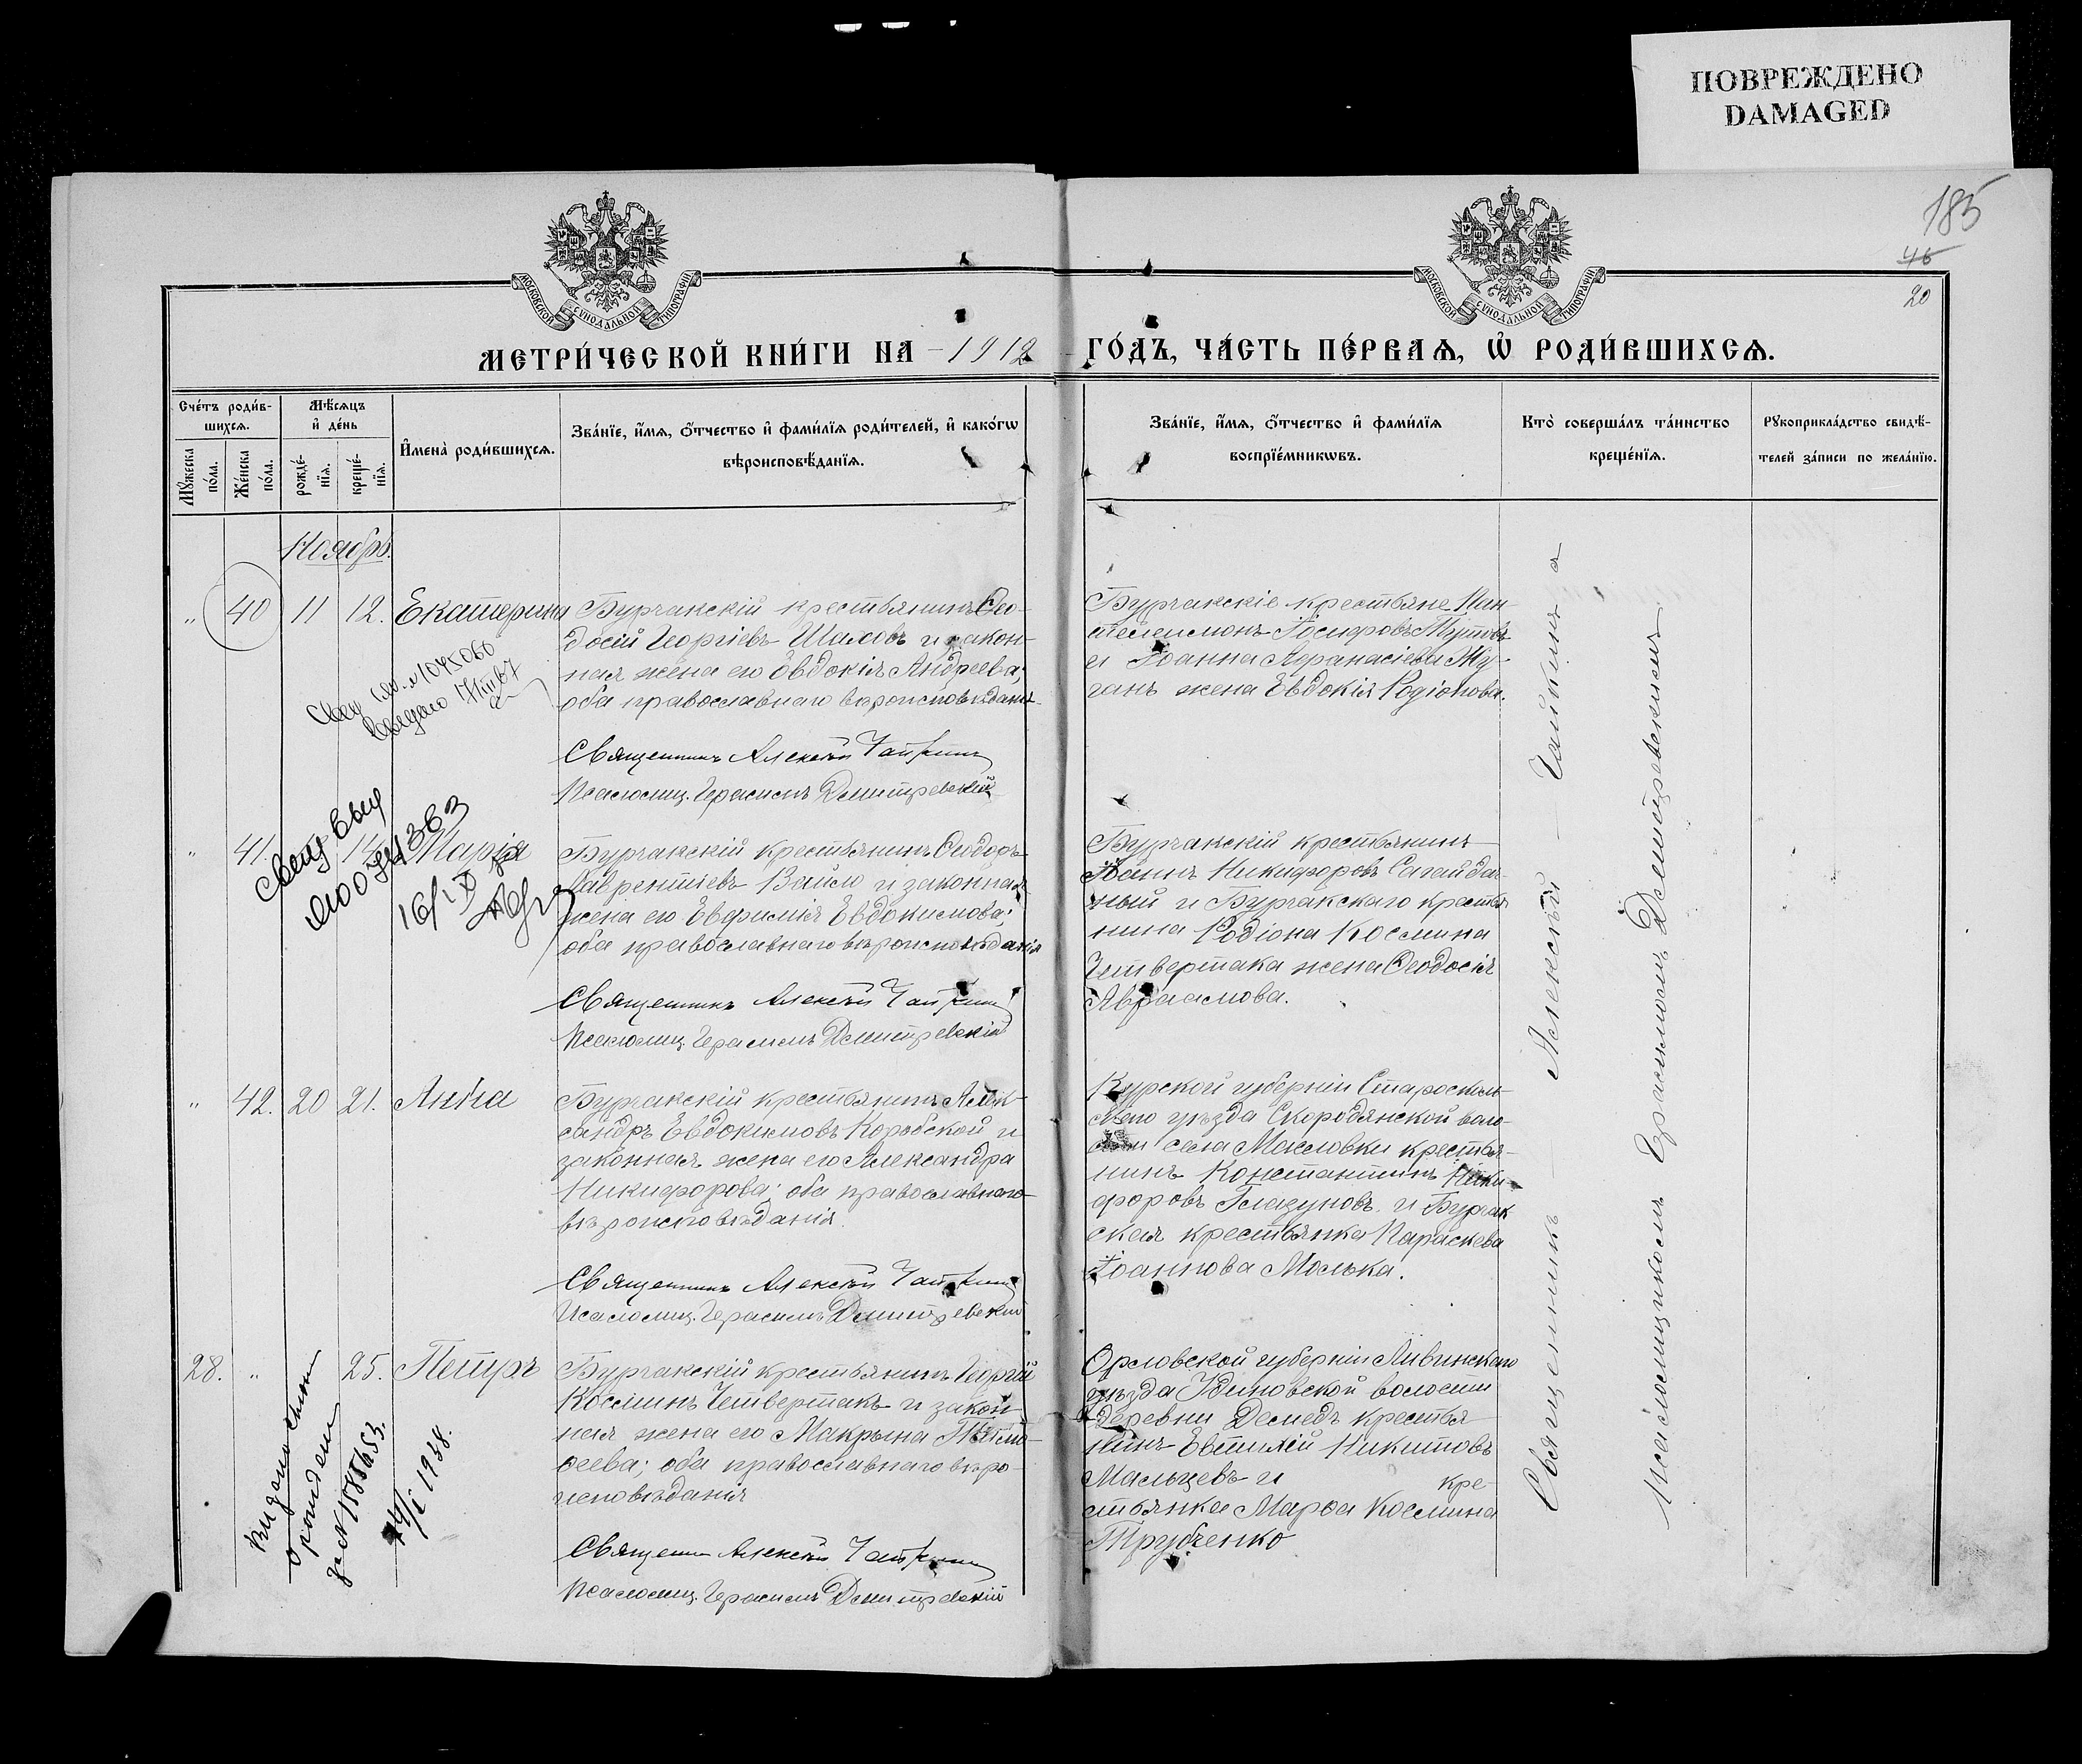 ПОВРЕЖДЕНО
DAMAGED
185
46
20
МОСКОВСКОЙ СУНОДАЛЬНОЙ ТИПОГРАФІИ
МОСКОВСКОЙ СУНОДАЛЬНОЙ ТИПОГРАФІИ
МЕТРИ́ЧЕСКОЙ КНИ́ГИ НА 1912
ГО́ДЪ, ЧА́СТЬ ПЕ́РВАѦ, Ѡ҆ РОДИ́ВШИХСѦ.
Сче́тъ роди́в-
шихсѧ.
Мꙋжеска
по́ла.
Же́нска
по́ла.
Мѣ́сѧцъ
и҆ де́нь
рожде́-
нїѧ.
креще́-
нїѧ.
И҆мена̀ роди́вшихсѧ.
Зва́нїе, и҆́мѧ, ѻ҆́тчество и҆ фами́лїѧ роди́телей, и҆ како́гѡ
вѣроисповѣ́данїѧ.
Зва́нїе, и҆́мѧ, ѻ҆́тчество и҆ фами́лїѧ
воспрїе́мникѡвъ.
Кто̀ соверша́лъ та́инство
креще́нїѧ.
Рꙋкоприкла́дство свидѣ́-
телей за́писи по жела́нїю.
Ноябрь.
„ 40 11 12. Екатерина
Бурчакскій крестьянинъ Ѳео-
досій Георгіевъ Шаловъ и закон-
ная жена его Евдокія Андреева;
оба православнаго вѣроисповѣданія
Священникъ Алексѣй Чайкинъ
Псаломщ. Герасимъ Дмитревскій
Бурчакскіе крестьяне Пан-
телеимонъ Іосифовъ
и Іоанна Аѳанасіева Му-
ганъ жена Евдокія Родіонова.
1045060
„ 41. 14. Марія
Бурчакскій крестьянинъ Ѳеодоръ
Лаврентіевъ Вайло и законная
жена его Евфимія Евдокимова;
оба православнаго вѣроисповѣданія
Священникъ Алексѣй Чайкинъ
Псаломщ. Герасимъ Дмитревскій
Бурчакскій крестьянинъ
Іоаннъ Никифоровъ Сагайдач-
ный и Бурчакскаго крестья
нина Родіона Космина
Четвертака жена Ѳеодосія
Авраамова.
„ 42. 20 21. Анна
Бурчакскій крестьянинъ Алек-
сандръ Евдокимовъ Коробской и
законная жена его Александра
Никифорова; оба православнаго
вѣроисповѣданія.
Священникъ Алексѣй Чайкинъ
Псаломщ. Герасимъ Дмитревскій
Курской губерніи Старооскол-
скаго уѣзда Скородянской воло-
сти села Масловки крестья-
нинъ Константинъ Ники-
форовъ Глазуновъ и Бурчак
ская крестьянка Параскева
Іоаннова Молька.
28. „ 25. Петръ
Бурчакскій крестьянинъ Георгій
Косминъ Четвертакъ и закон-
ная жена его Макрина Тимо-
ѳеева; оба православнаго вѣро-
исповѣданія
Священн Алексѣй Чайкинъ
Псаломщ. Герасимъ Дмитревскій
Орловской губерніи Ливинскаго
уѣзда волости
деревни крестья
нинъ Евтихій Никитовъ
Мальцевъ и кре-
стьянка Марѳа Космина
Трубченко
Видано
о рожден
за № 1588653.
1938.
Священникъ Алексѣй Чайкинъ
Псаломщикомъ Герасимомъ Дмитревскимъ